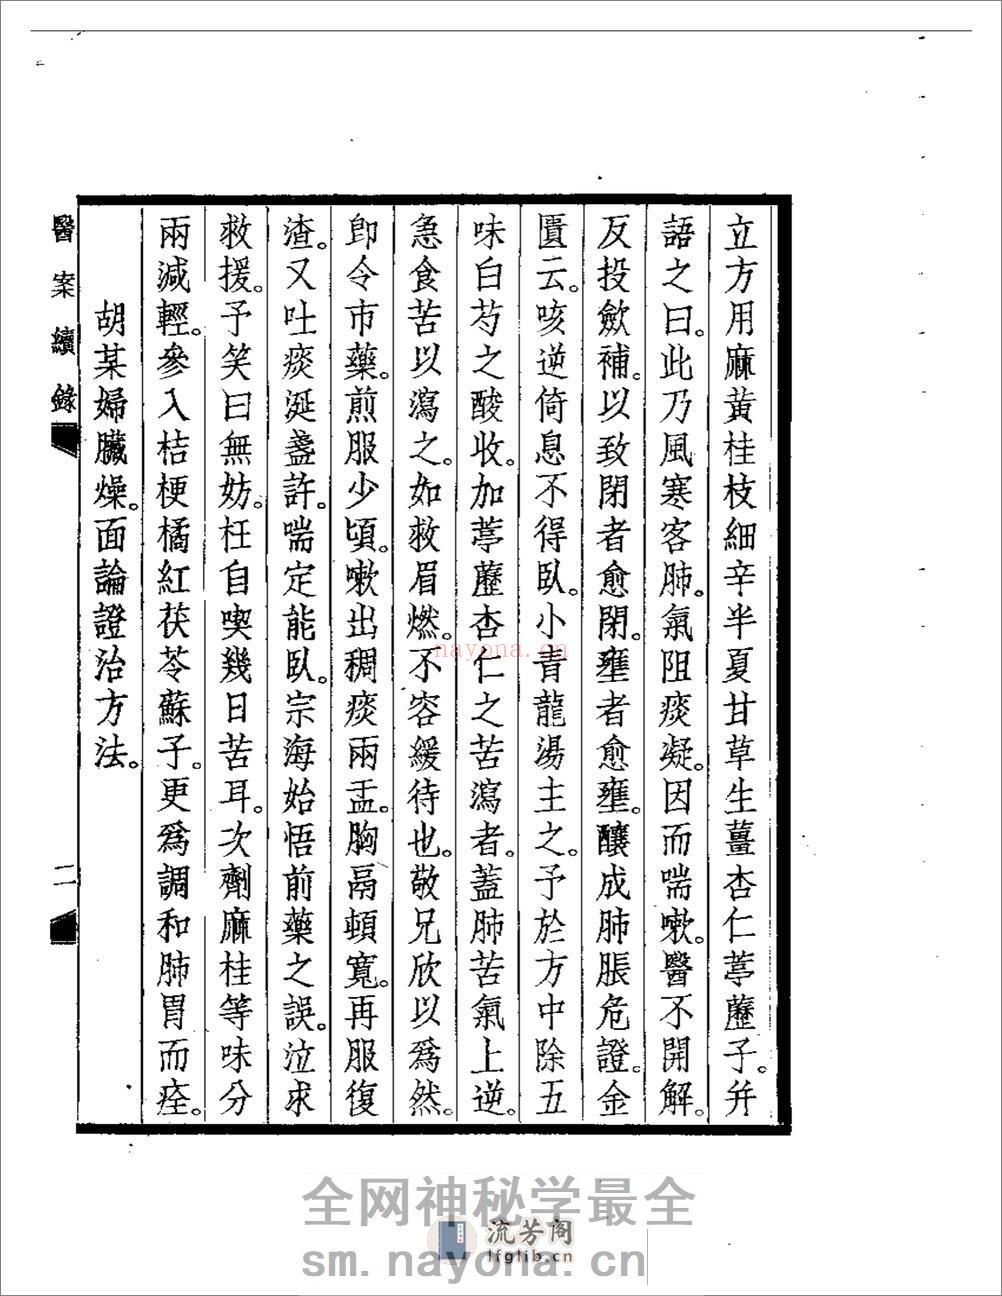 立方用麻黃桂枝細辛半夏甘草生薑杏仁葶藶子。幷
語之曰。此乃風寒客肺。氣阻痰凝。因而喘嗽。醫不開解。
反投歛補。以致閉者愈閉。壅者愈壅。釀成肺脹危證。金
匱云。咳逆倚息不得臥。小青龍湯主之。予於方中除五
味白芍之酸收。加葶藶杏仁之苦瀉者。蓋肺苦氣上逆。
急食苦以瀉之。如救眉燃。不容緩待也。敬兄欣以爲然。
卽令市藥。煎服少頃。嗽出稠痰兩盂。胸鬲頓寬。再服復
渣。又吐痰涎盞許。喘定能臥。宗海始悟前藥之誤。泣求
救援。予笑曰無妨。枉自喫幾日苦耳。次劑麻桂等味分
兩減輕。參入桔梗橘紅茯苓蘇子。更爲調和肺胃而痊。
胡某婦臟燥。面論證治方法。
醫案續錄
二
nayona.cn
全网神秘学最全
流芳阁
lfglib.cn
sm.nayona.cn